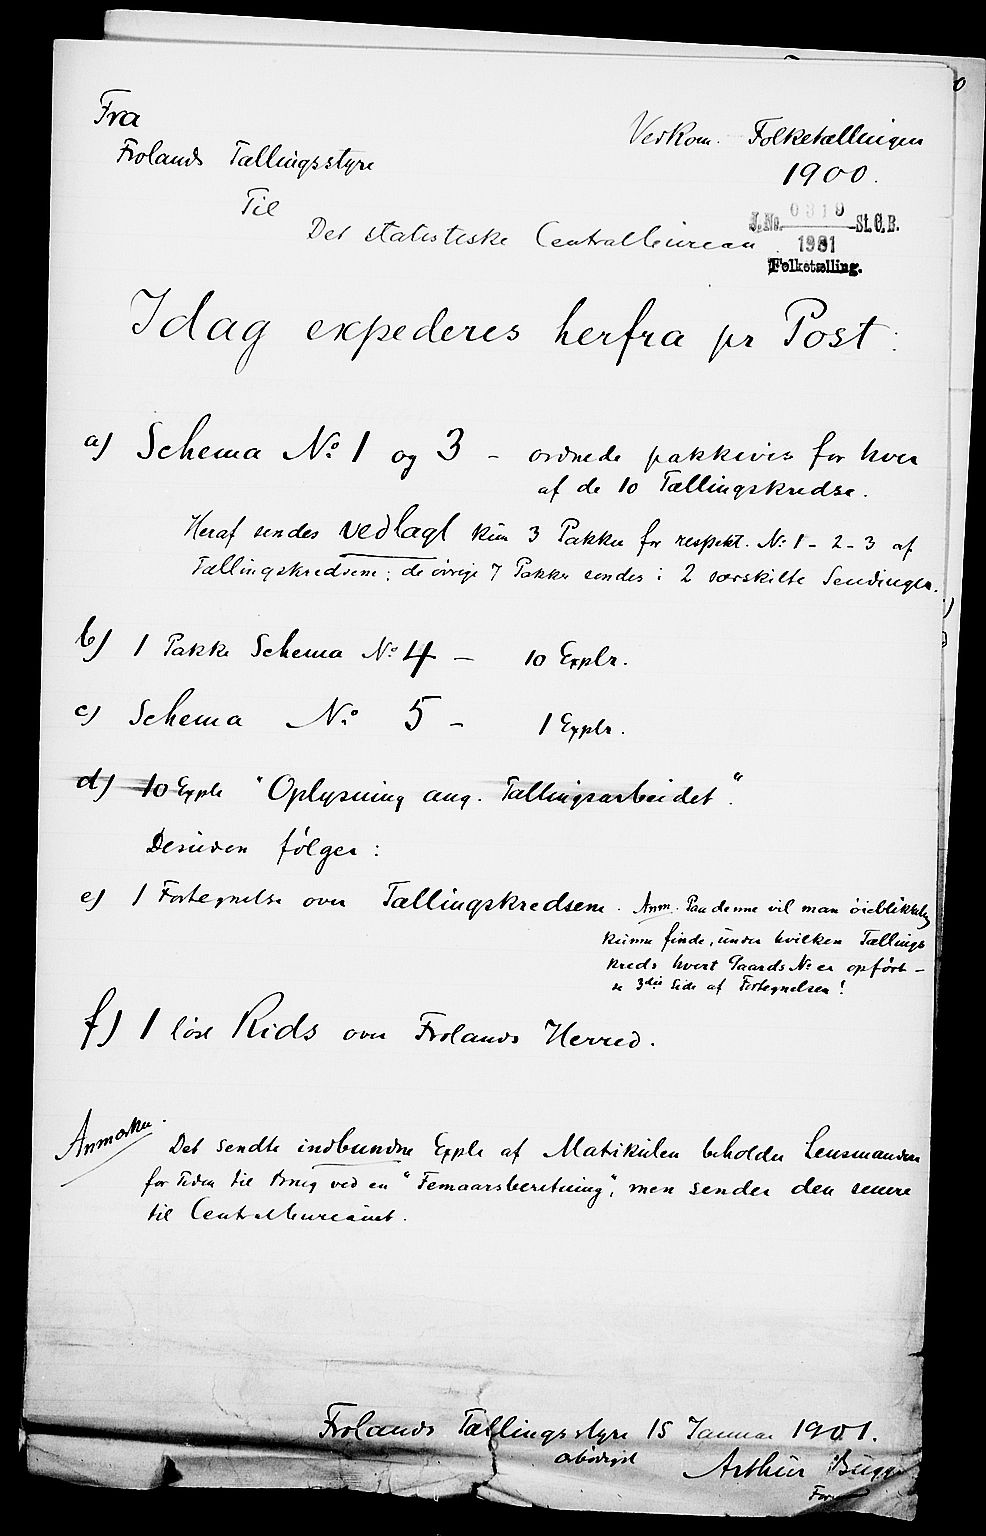 Fra
Frolands Tællingsstyre
Vedkom. Folketællingen
1900.
Til
Det statistiske Centralbureau
J.No. 0319 St.C.B.
1901
Folketælling.
Idag expederes herfra pr Post:
a) Schema No. 1 og 3 - ordnede pakkevis for hver
af de 10 Tællingskredse.
Heraf sendes vedlagt kun 3 Pakker for respekt. No. 1 - 2 - 3 af
Tællingskredsene; de øvrige 7 Pakker sendes i 2 særskilte Sendinger.
b) 1 Pakke Schema No. 4 - 10 Explr.
c) Schema No. 5 - 1 Explr.
d) 10 Explr "Oplysning ang. Tællingsarbeidet".
Desuden følger:
e) 1 Fortegnelse over Tællingskredsene. Anm. Paa denne vil man øieblikkelig
kunne finde, under hvilken Tællings
kreds hvert Gaards No. er opført -
se 3die Side af Fortegnelsen!
f) 1 løse Rids over Frolands Herred.
Anmærkn.
Det sendte indbundne Explr af Matrikulen beholder Lensmanden
for Tiden til Brug ved en "Femaarsberetning", men sender den senere
til Centralbureauet.
Frolands Tællingsstyre 15 Januar 1901.
ærbødigst
Arthur Bugge